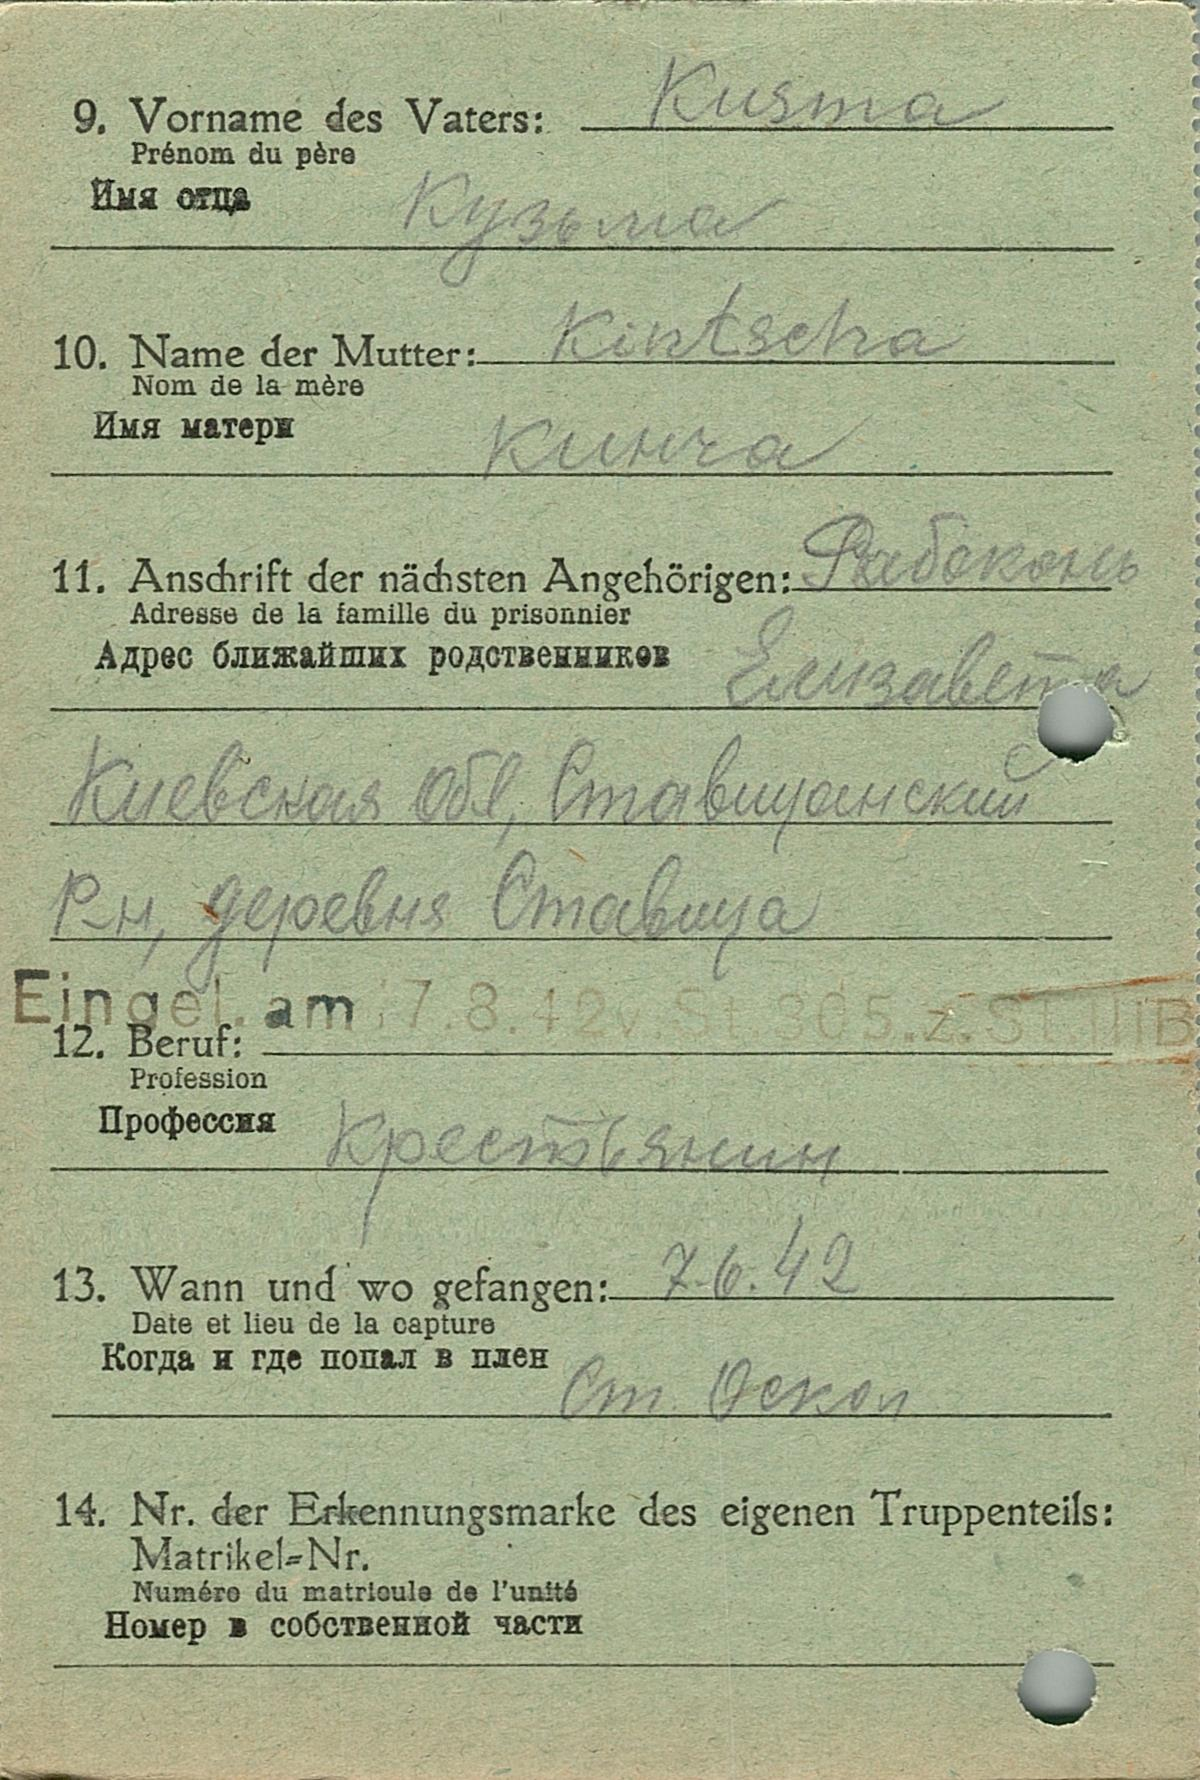 9. Vorname des Vaters: Kusma
Prénom du père
Имя отца
Кузьма
10. Name der Mutter: Kintscha
Nom de la mère
Имя матери
Кинча
11. Anschrift der nächsten Angehörigen: Рябоконь
Adresse de la famille du prisonnier
Адрес ближайших родственников
Елизавета
Киевская обл, Ставищанский
Р-н, деревня Ставища
Eingel. am 17.8.42 v. St. 305. z. St. III B
12. Beruf:
Profession
Профессия
Крестьянин
13. Wann und wo gefangen: 7.6.42
Date et lieu de la capture
Когда и где попал в плен
Ст. Оскол
14. Nr. der Erkennungsmarke des eigenen Truppenteils:
Matrikel-Nr.
Numéro du matricule de l'unité
Номер в собственной части